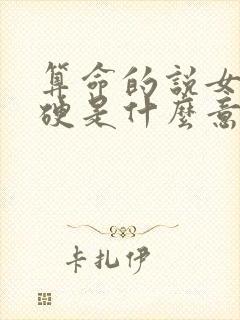 算命的説女
硬是什麼意
卡扎伊